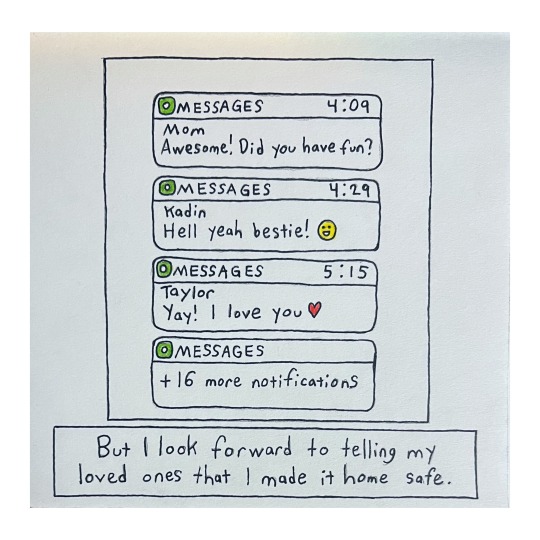 MESSAGES 4:09
Mom
Awesome! Did you have fun?
MESSAGES 4:29
Kadin
Hell yeah bestie! 😃
MESSAGES 5:15
Taylor
Yay! I love you ❤️
MESSAGES
+16 more notifications
But I look forward to telling my
loved ones that I made it home safe.